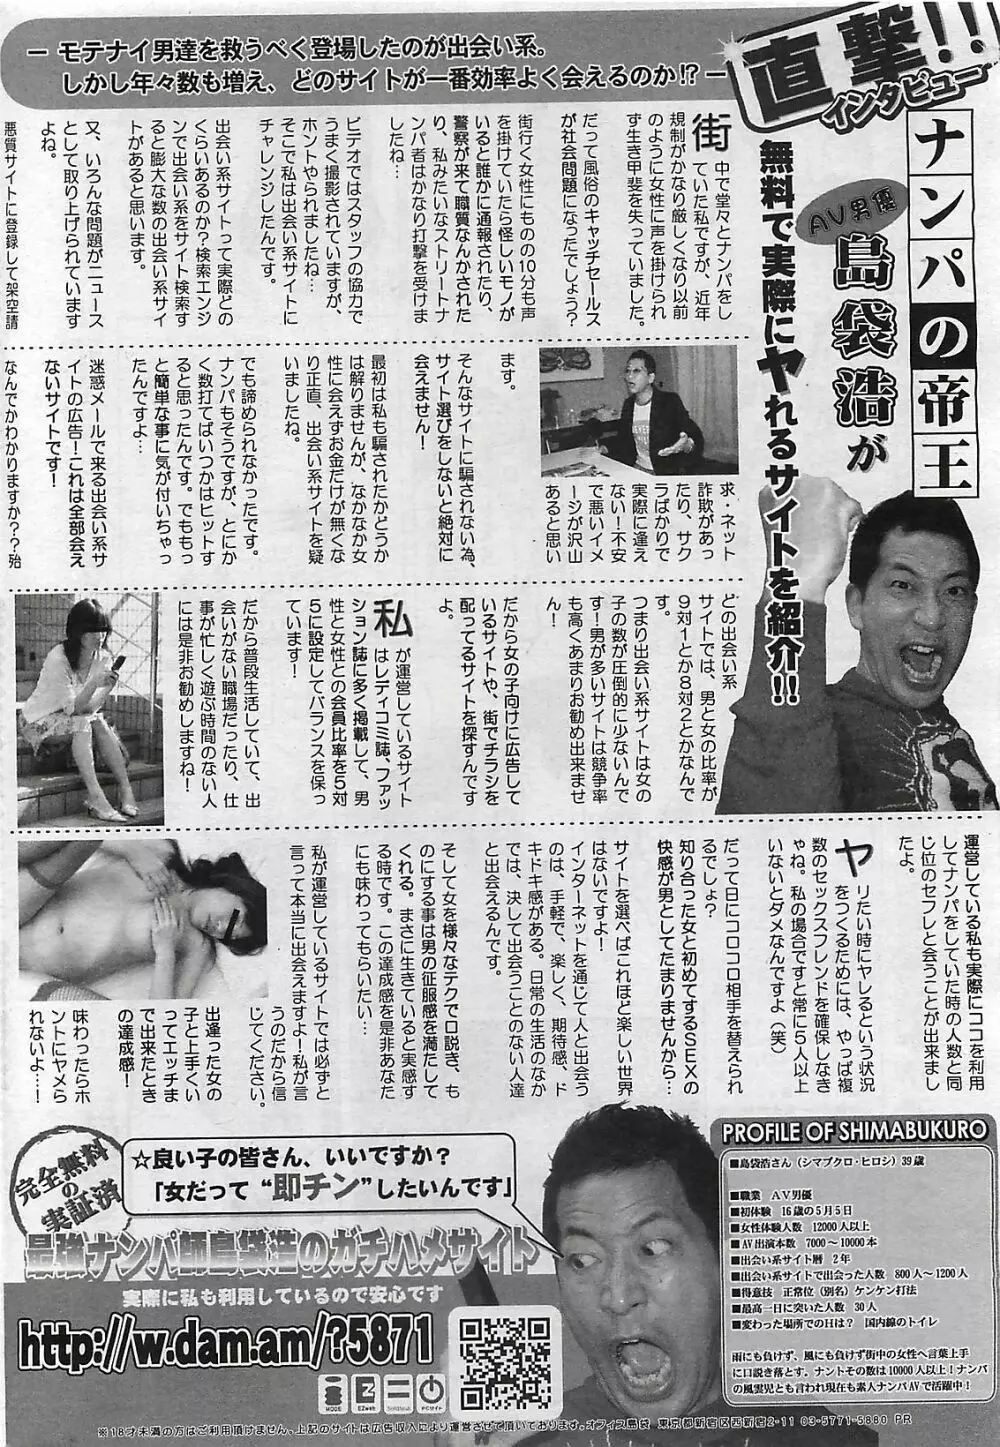 直撃!!
インタビュー
ー モテナイ男達を救うべく登場したのが出会い系。
しかし年々数も増え、どのサイトが一番効率よく会えるのか!? ー
ナンパの帝王
AV男優
島袋浩が
無料で実際にヤれるサイトを紹介!!
街中で堂々とナンパをし
ていた私ですが、近年
規制がかなり厳しくなり以前
のように女性に声を掛けられ
ず生き甲斐を失っていました。
だって風俗のキャッチセールス
が社会問題になったでしょう?
街行く女性にものの10分も声
を掛けていたら怪しいモノが
いると誰かに通報されたり、
警察が来て職質なんかされた
り、私みたいなストリートナ
ンパ者はかなり打撃を受けま
したね…
ビデオではスタッフの協力で
うまく撮影されていますが、
ホントやられましたね…
そこで私は出会い系サイトに
チャレンジしたんです。
出会い系サイトって実際どの
くらいあるのか?検索エンジ
ンで出会い系をサイト検索す
ると膨大な数の出会い系サイ
トがあると思います。
又、いろんな問題がニュース
として取り上げられています
よね。
悪質サイトに登録して架空請
求・ネット
詐欺があっ
たり、サク
ラばかりで
実際に逢え
ない!不安
で悪いイメ
ージが沢山
あると思い
ます。
そんなサイトに騙されない為、
サイト選びをしないと絶対に
会えません!
最初は私も騙されたかどうか
は解りませんが、なかなか女
性に会えずお金だけが無くな
り正直、出会い系サイトを疑
いましたね。
でも諦められなかったです。
ナンパもそうですが、とにか
く数打てばいつかはヒットす
ると思ったんです。でももっ
と簡単な事に気が付いちゃっ
たんですよ…
迷惑メールで来る出会い系サ
イトの広告!これは全部会え
ないサイトです!
なんでかわかりますか?殆
どの出会い系
サイトでは、男と女の比率が
9対1とか8対2とかなんで
す。
つまり出会い系サイトは女の
子の数が圧倒的に少ないんで
す!男が多いサイトは競争率
も高くあまりお勧め出来ませ
ん!
だから女の子向けに広告して
いるサイトや、街でチラシを
配ってるサイトを探すんです
よ。
私が運営しているサイト
はレディコミ誌、ファッ
ション誌に多く掲載して、男
性と女性との会員比率を5対
5に設定してバランスを保っ
ています!
だから普段生活していて、出
会いがない職場だったり、仕
事が忙しく遊ぶ時間のない人
には是非お勧めしますね!
運営している私も実際にココを利用
してナンパをしていた時の人数と同
じ位のセフレと会うことが出来まし
たよ。
ヤリたい時にヤレるという状況
をつくるためには、やっぱ複
数のセックスフレンドを確保しなき
ゃね。私の場合ですと常に5人以上
いないとダメなんですよ(笑)
だって日にコロコロ相手を替えられ
るでしょ?
知り合った女と初めてするSEXの
快感が男としてたまりませんから…
サイトを選べばこれほど楽しい世界
はないですよ!
インターネットを通じて人と出会う
のは、手軽で、楽しく、期待感、ド
キドキ感がある。日常の生活のなか
では、決して出会うことのない人達
と出会えるんです。
そして女を様々なテクで口説き、も
のにする事は男の征服感を満たして
くれる。まさに生きていると実感す
る時です。この達成感を是非あなた
にも味わってもらいたい…
私が運営しているサイトでは必ずと
言って本当に出会えますよ!私が言
うのだから信
じてください。
出逢った女の
子と上手くい
ってエッチま
で出来たとき
の達成感!
味わったらホ
ントにヤメら
れないよ…!
PROFILE OF SHIMABUKURO
■島袋浩さん(シマブクロ・ヒロシ)39歳
■職業 AV男優
■初体験 16歳の5月5日
■女性体験人数 12000人以上
■AV出演本数 7000〜10000本
■出会い系サイト暦 2年
■出会い系サイトで出会った人数 800人〜1200人
■得意技 正常位(別名)ケンケン打法
■最高一日に突いた人数 30人
■変わった場所でのHは? 国内線のトイレ
雨にも負けず、風にも負けず街中の女性へ言葉上手
に口説き落とす。ナントその数は10000人以上!ナンパ
の風雲児とも言われ現在も素人ナンパAVで活躍中!
完全無料
の
実証済
☆良い子の皆さん、いいですか?
「女だって“即チン”したいんです」
最強ナンパ師島袋浩のガチハメサイト
実際に私も利用しているので安心です
http://w.dam.am/?5871
i MODE
EZweb
SoftBank
PCサイト
※18才未満の方はご利用頂けません。上記のサイトは広告収入により運営させて頂いております。オフィス島袋 東京都新宿区西新宿2-11 03-5771-5880 PR